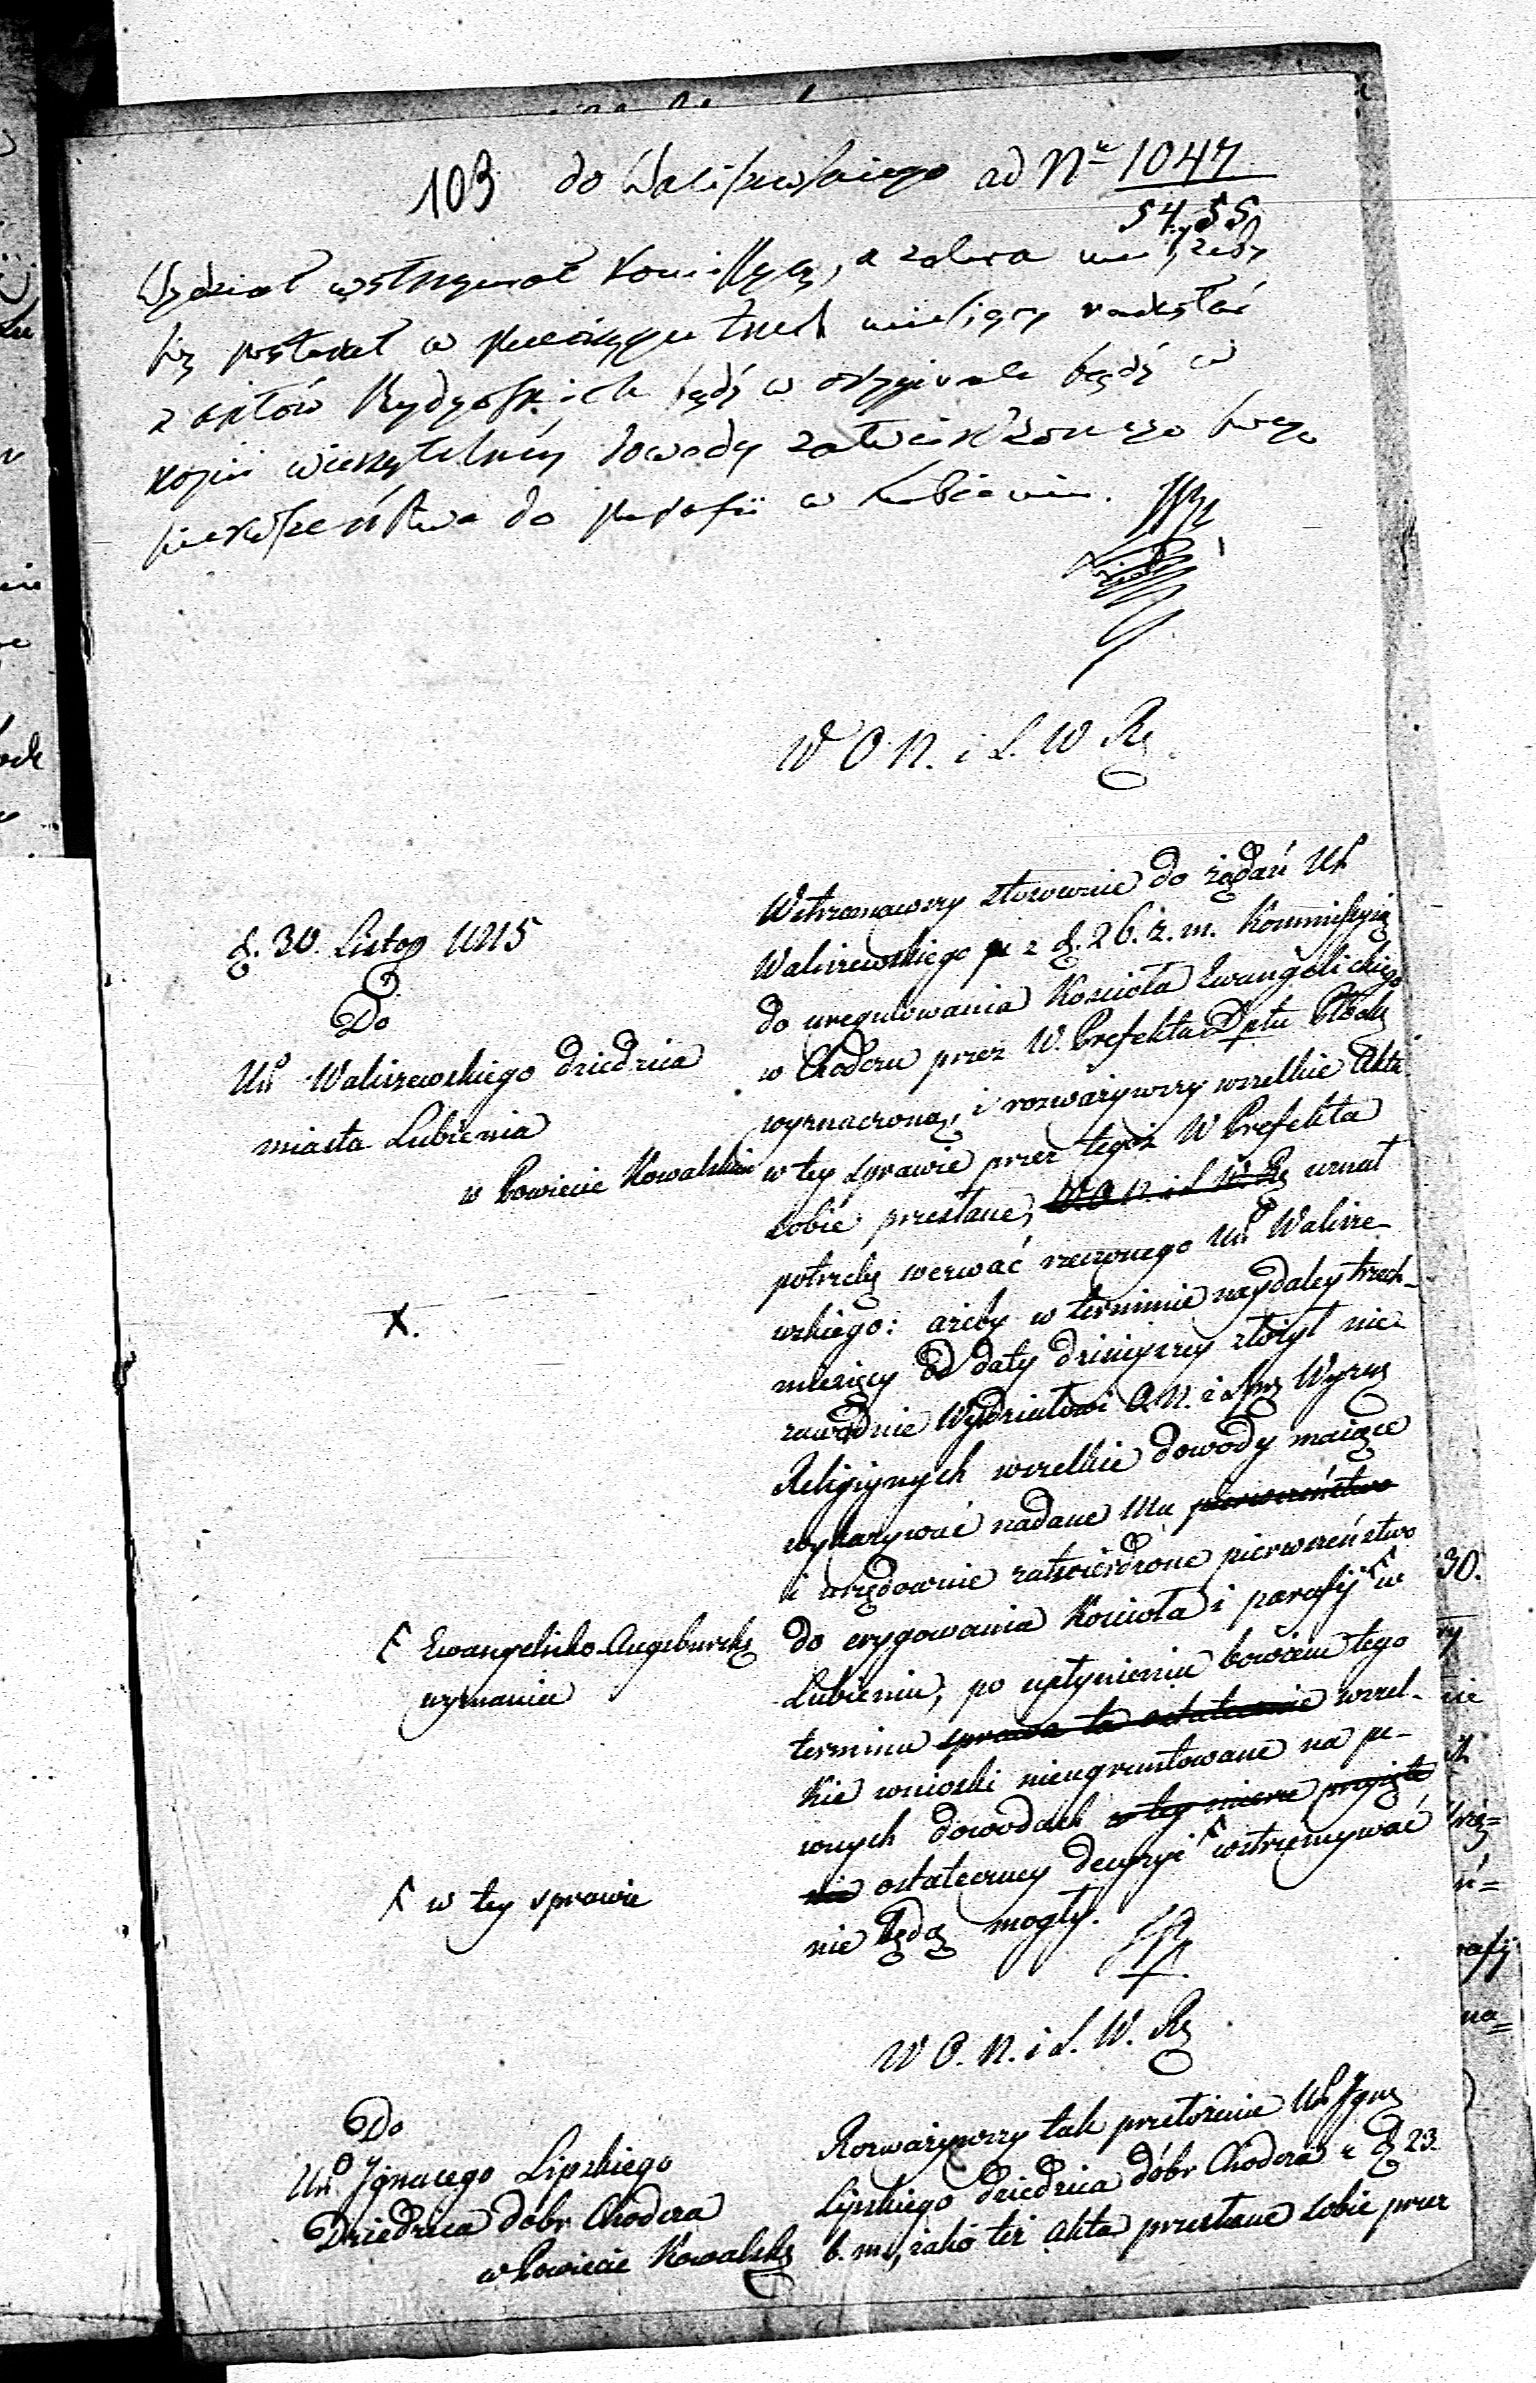 103 do Waliszewskiego ad Nr 1047
54, 55
Wydział wstrzymał Kommissyą, a zaleca mu, żeby
się postarał w przeciągu trzech miesięcy nadesłać
z aktów bądź w oryginale bądź w
kopii wierzytelnéy dowody zatwierdzonego swego
pierwszeństwa do parafii w Lubieniu.
W O. N. i S. W. R.
d. 30. Listop 1815
Do
Ur Waliszewskiego dziedzica
miasta Lubienia
w Powiecie Kowalskim
Wstrzymawszy stosownie do żądań Ur
Waliszewskiego z d. 26. z. m. Kommissyią
do uregulowania Kościoła Ewangelickiego
w Chodczu przez W. Prefekta Dptu
wyznaczoną, i rozważywszy wszelkie Akta
w tey sprawie przez tegoż W Prefekta
sobie przesłane, W. O. N. i S. W. R. uznał
potrzebę wezwać rzeczonego Ur Walisze-
wskiego: ażeby w terminie naydaley trzech
miesięcy od daty dzisieyszey złożył nie-
zawodnie Wydziałowi O. N. i Wyzn
Religiynych wszelkie dowody maiące
wykazywać nadane Mu pierwszeństwo
i urzędownie zatwierdzone pierwszeństwo
do erygowania Kościoła i parafij F w
F Ewangelicko-Augsburską
wyznania
Lubieniu, po upłynieniu bowiem tego
terminu sprawa ta ostatecznie wszel-
kie wnioski nieugruntowane na pe-
wnych dowodach w tey mierze
ostateczney decyzyi F wstrzymywać
F w tey sprawie
nie będą mogły.
W O. N. i S. W. R.
Do
Ur Jgnacego Lipskiego
Dziedzica dóbr Chodcza
w Powiecie Kowalską
Rozważywszy tak przełożenie Ur Jgna
Lipskiego dziedzica dóbr Chodcza z d 23.
b. m., iako też akta przesłane sobie przez